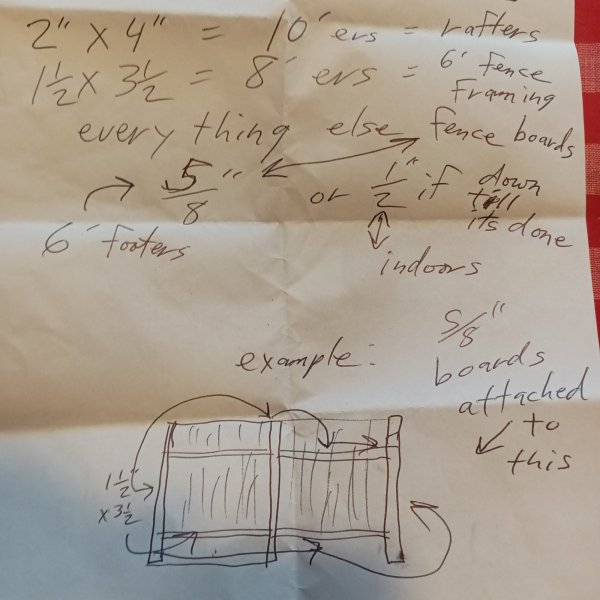 2" x 4" = 10' ers = rafters
1 1/2 x 3 1/2 = 8' ers = 6' fence framing
every thing else fence boards
5/8" or 1/2" if down till its done
6' footers
indoors
example:
5/8" boards
attached
to
this
1 1/2"
x 3 1/2